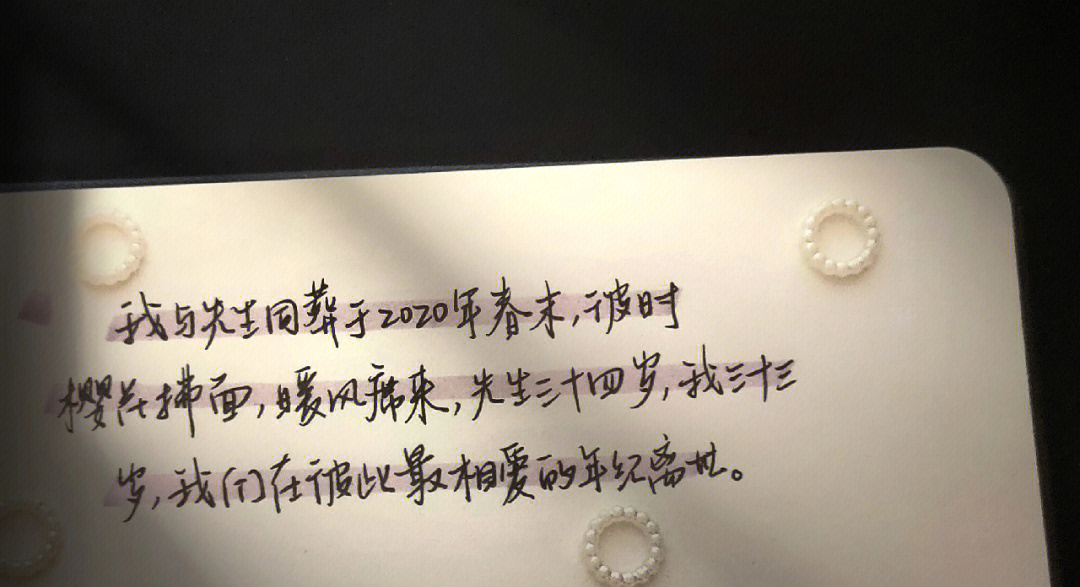 我与先生同葬于2020年春末,彼时
樱花拂面,暖风席来,先生三十四岁,我三十三
岁,我们在彼此最相爱的年纪离世。